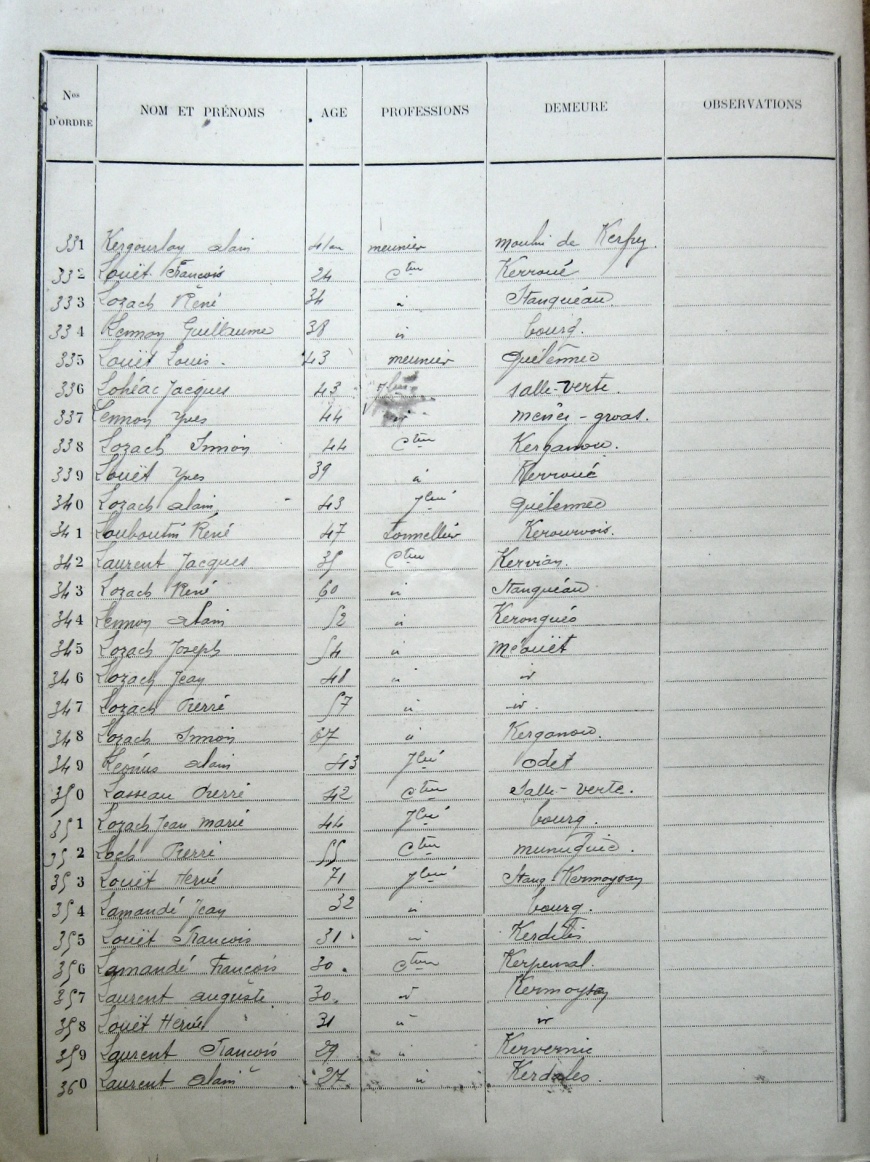 Nos D'ORDRE NOM ET PRÉNOMS AGE PROFESSIONS DEMEURE OBSERVATIONS
331 Kergourlay alain 41 an meunier moulin de Kerfry.
332 Louët François 24 cteur Kerroué
333 Lozach René 34 " Stanquéau
334 Lennon Guillaume 38 " bourg.
335 Louët Louis 43 meunier quélennec
336 Lohéac Jacques 43 salle-verte.
337 Lennon Yves 44 " menez-groas.
338 Lozach Simon 44 cteur Kerganou.
339 Louët Yves 39 " Kerroué
340 Lozach alain 43 Jlier quélennec
341 Louboutin René 47 Tonnellier Kerourvois.
342 Laurent Jacques 35 cteur Kervian.
343 Lozach René 60 " Stanquéau
344 Lennon alain 52 " Kerongués
345 Lozach Joseph 54 " Méouët
346 Lozach Jean 48 " "
347 Lozach Pierre 57 " "
348 Lozach Simon 67 " Kerganou.
349 alain 43 Jlier odet
350 Lasseau Pierre 42 cteur Salle-verte.
351 Lozach Jean marie 44 Jlier bourg.
352 Loch Pierre 55 cteur munuguic.
353 Louët Hervé 71 Jlier Stang Kermoysan
354 Lamandé Jean 32 " bourg.
355 Louët François 31. " Kerdilis
356 Lamandé François 30. cteur Kerpenval.
357 Laurent auguste 30. " Kermoysan
358 Louët Hervé 31 " "
359 Laurent François 29 " Kervernic
360 Laurent alain 27. " Kerdalès.